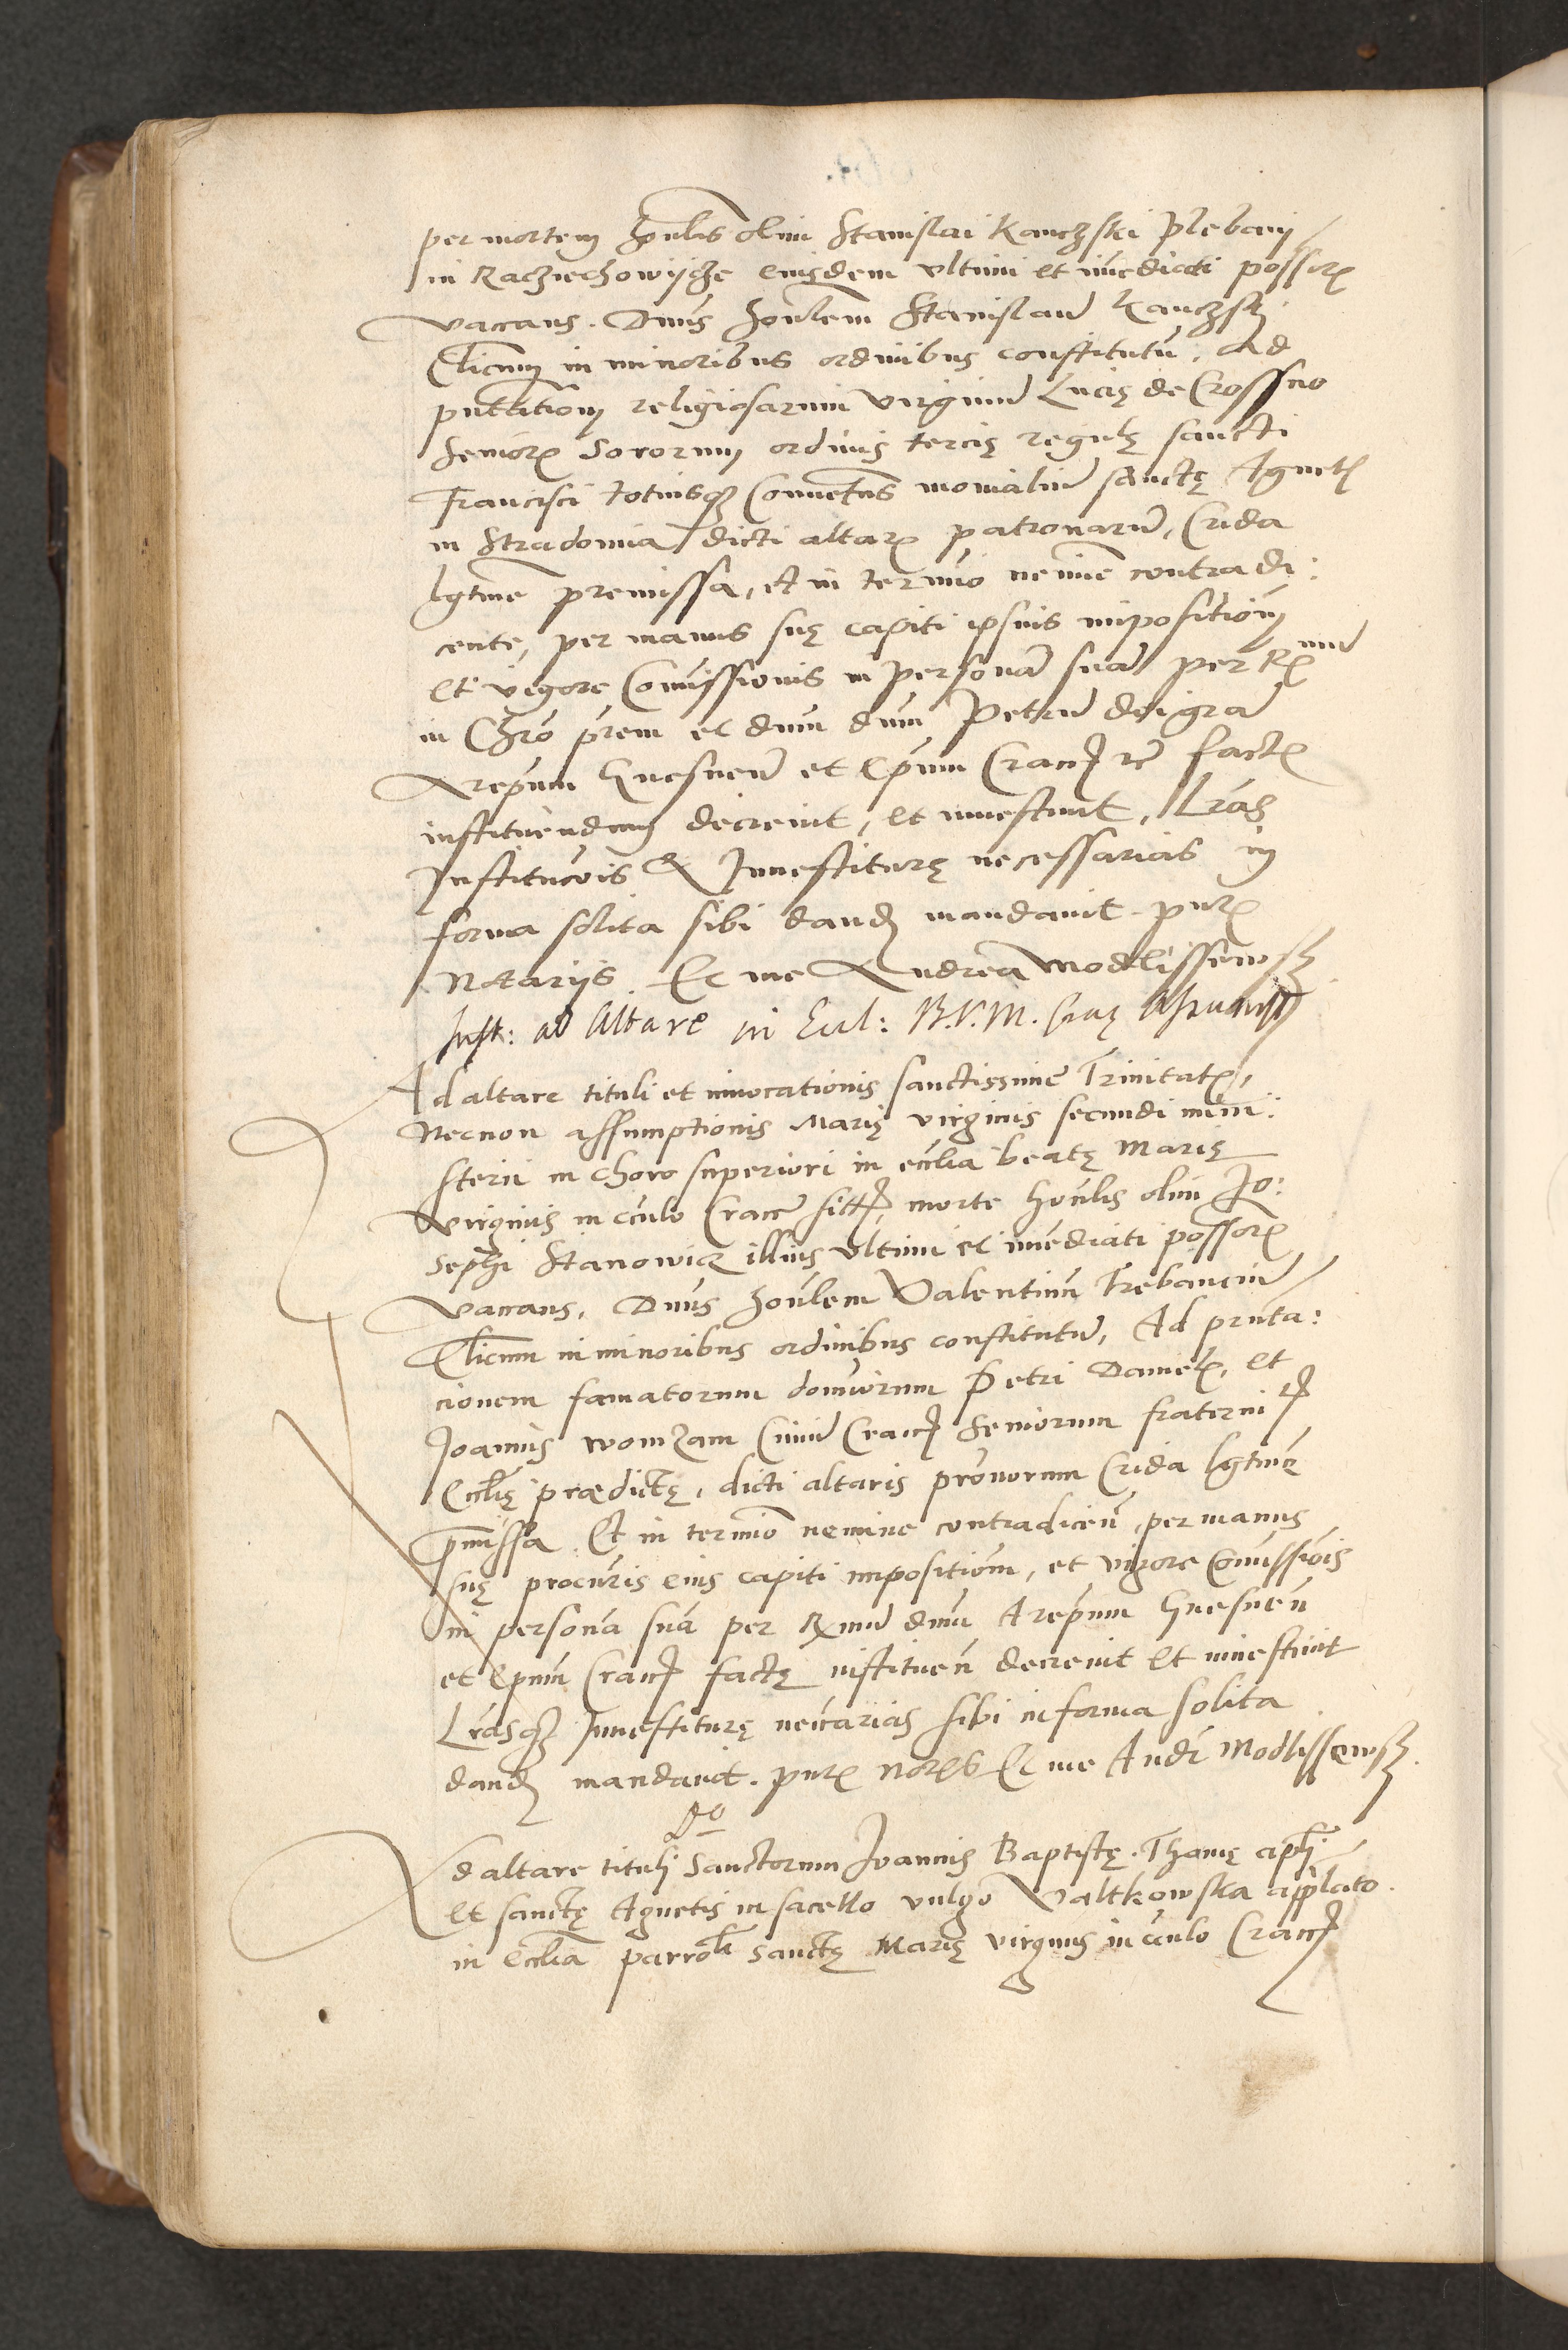 per mortem hônlis olim Stanislai Kanczski Plebani
in Racziechowijcze eiusdem vltimi et imediati possess
vacans. Dnus hônlem Stanislaum Kanczski
Clicum in minoribus ordinibus constitutu, Ad
pntationem religiosarum virginum Lucię de Crossno
Senioris Sororum ordinis tercię regulę sancti
Francisci totiusq Conuentus monialium sanctę Agnetis
in Stradomia dicti altaris patronarum, Crida
lgtme premissa, et in termino nemine contradi:
cente, per manus suę capiti ipsius impositionem
et vigore Comissionis in personam suam per Rmum
in Chro prem et dnum dnum Petrum dei gra
Arepum Gnesnen et Epum Crac etc factę
instituendum decreuit, et inuestiuit, Lras
Institucois & Inuestiturę necessarias in
forma solita sibi dandas mandauit. pntibus
Notariis. Et me Andrea Modlissewski
Inst: ad Altare in Eccl: B.V.M.
Ad altare tituli et inuocationis sanctissime Trinitatis,
Necnon assumptionis Marię virginis secundi mini:
sterii in choro superiori in ecclia beatę Marię
virginis in cculo Crac sitt, morte honlis olim Jo:
sephi Stanowicz illius vltimi et imediati possoris
vacans, Dnus honlem Valentinum Trebancium
Clicum in minoribus ordinibus constitutum, Ad pnta:
cionem famatorum dominorum Petri Danielis, et
Joannis womzam Ciuium Crac Seniorum fraternitatis
Ecclię prædictę, dicti altaris pronorum Crida lgtime
pmissa. Et in termino nemine contradicen, per manus
suę procuris eius capiti impositionem, et vigore Comissiois
in persona sua per Rmum dnum Arepum Gnesnen
et Epum Crac factę instituen decreuit et inuestiuit
Lrasq Inuestiturę neccarias sibi in forma solita
dandas mandauit. pntibus Noriis Et me Andr Modlissewski.
Ad altare tituli Sanctorum Joannis Baptistę. Thomę apli
et sanctę Agnetis in sacello vulgo Valtkowska applato
in Ecclia parroli sanctę Marię virginis in cculo Crac